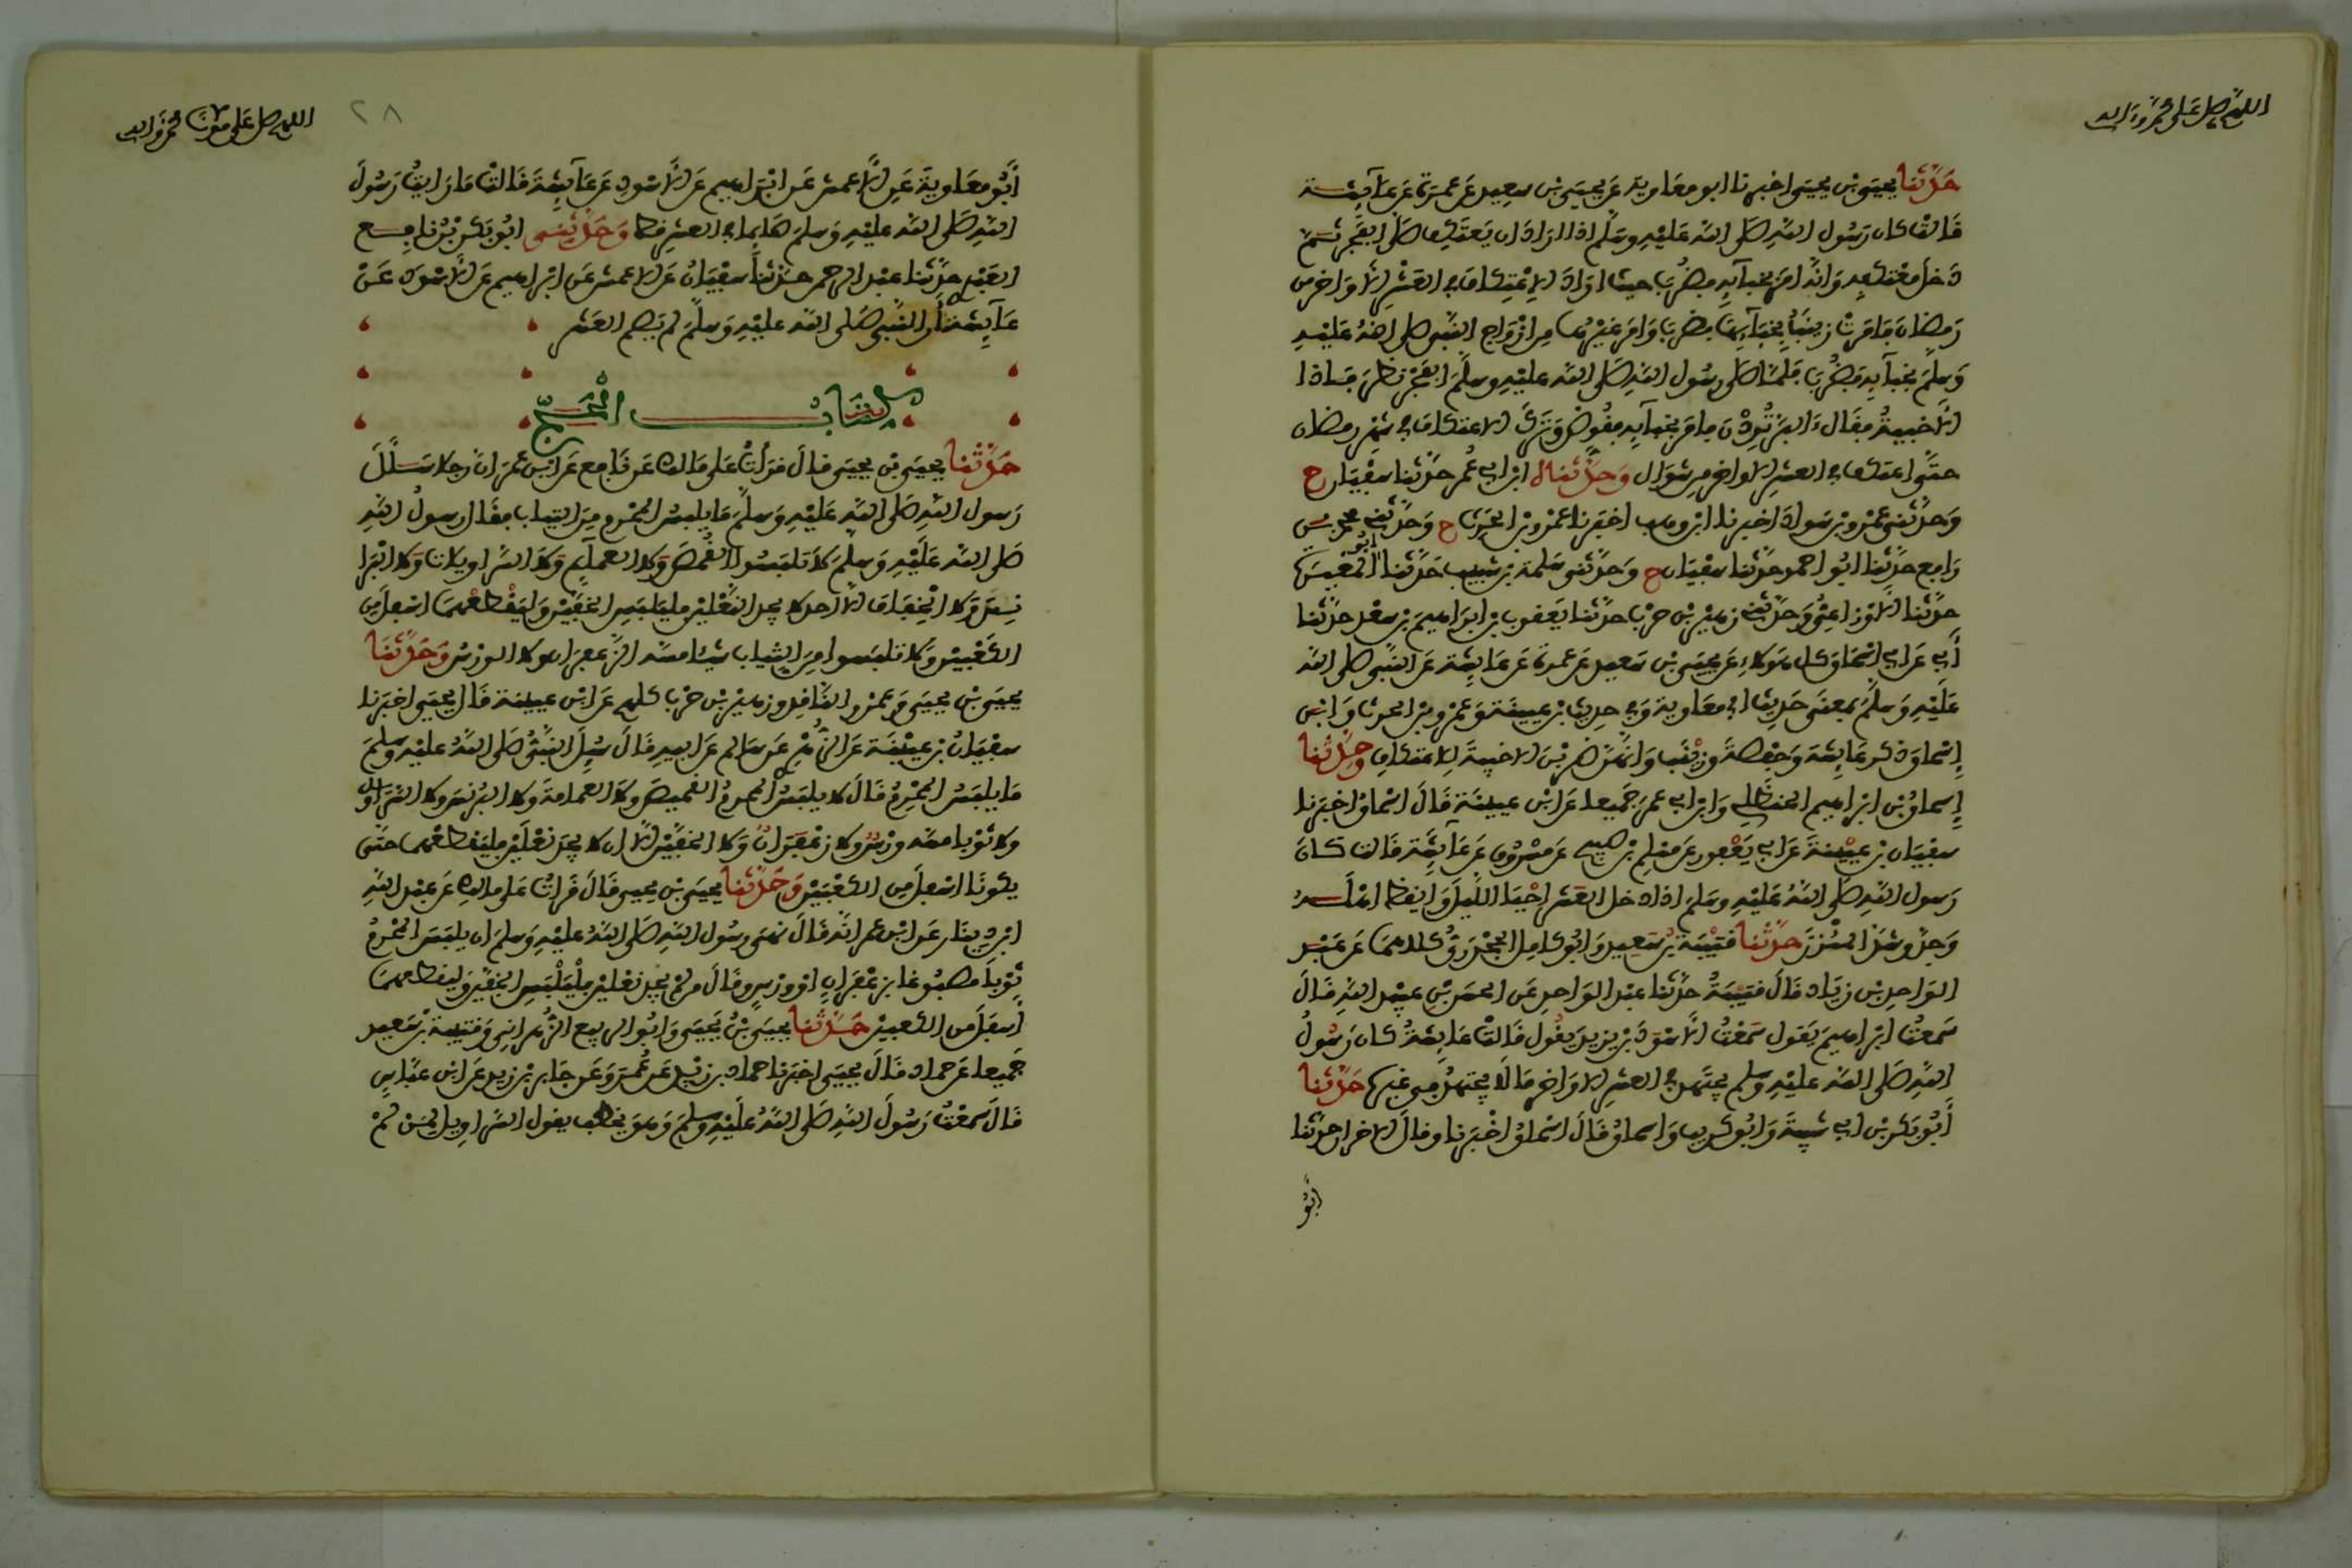 اللهم صل على محمد وآله
حدثنا يحيى بن يحيى اخبرنا ابو معاوية عن يحيى بن سعيد عن عمرة عن عائشة
قالت كان رسول الله صلى الله عليه وسلم اذا اراد ان يعتكف صلى الفجر ثم
دخل معتكفه وانه امر بخبائه فضرب حيث اراد الاعتكاف في العشر الاواخر من
رمضان فامرت زينب بخبائها فضرب وامر غيرها من ازواج النبي صلى الله عليه
وسلم بخبائه فضرب فلما صلى رسول الله صلى الله عليه وسلم الفجر نظر فاذا
الاخبية فقال ءالبر تردن فامر بخبائه فقوض وترك الاعتكاف في شهر رمضان
حتى اعتكف في العشر الاواخر من شوال وحدثناه ابن ابي عمر حدثنا سفيان ح
وحدثني عمرو بن سواد اخبرنا ابن وهب اخبرنا عمرو بن الحرث ح وحدثني محمد بن
رافع حدثنا ابو احمد حدثنا سفيان ح وحدثني سلمة بن شبيب حدثنا ابو المغيرة
حدثنا الاوزاعي وحدثني زهير بن حرب حدثنا يعقوب بن ابراهيم بن سعد حدثنا
أبي عن ابن اسحاق كل هؤلاء عن يحيى بن سعيد عن عمرة عن عائشة عن النبي صلى الله
عليه وسلم بمعنى حديث ابي معاوية وفي حديث بن عيينة وعمرو بن الحرث وابن
إسحاق ذكر عائشة وحفصة وزينب وانهن ضربن الاخبية للاعتكاف وحدثنا
إسحاق بن ابراهيم الحنظلي وابن ابي عمر جميعا عن ابن عيينة قال اسحاق اخبرنا
سفيان بن عيينة عن ابي يعفور عن مسلم بن صبيح عن مسروق عن عائشة قالت كان
رسول الله صلى الله عليه وسلم اذا دخل العشر احيا الليل وايقظ اهله
وجد وشد المئزر حدثنا قتيبة بن سعيد وابو كامل الجحدري كلاهما عن عبد
الواحد بن زياد قال قتيبة حدثنا عبد الواحد عن الحسن بن عبيد الله قال
سمعت ابراهيم يقول سمعت الاسود بن يزيد يقول قالت عائشة كان رسول
الله صلى الله عليه وسلم يجتهد في العشر الاواخر ما لا يجتهد في غيرها حدثنا
أبو بكر بن ابي شيبة وابو كريب واسحاق قال اسحاق اخبرنا وقال الاخران حدثنا
ابو
٢٨
أبو معاوية عن الاعمش عن ابراهيم عن الاسود عن عائشة قالت ما رايت رسول
الله صلى الله عليه وسلم صايما في العشر قط وحدثني ابو بكر بن نافع
العبدي حدثنا عبد الرحمن حدثنا سفيان عن الاعمش عن ابراهيم عن الاسود عن
عائشة ان النبي صلى الله عليه وسلم لم يصم العشر
كتاب الحج
حدثنا يحيى بن يحيى قال قرات على مالك عن نافع عن ابن عمر ان رجلا سئل
رسول الله صلى الله عليه وسلم ما يلبس المحرم من الثياب فقال رسول الله
صلى الله عليه وسلم لا تلبسوا القمص ولا العمائم ولا السراويلات ولا البرا
نس ولا الخفاف الا احد لا يجد النعلين فليلبس الخفين وليقطعهما اسفل من
الكعبين ولا تلبسوا من الثياب شيئا مسه الزعفران ولا الورس وحدثنا
يحيى بن يحيى وعمرو الناقد وزهير بن حرب كلهم عن ابن عيينة قال يحيى اخبرنا
سفيان بن عيينة عن الزهري عن سالم عن ابيه قال سئل النبي صلى الله عليه وسلم
ما يلبس المحرم قال لا يلبس المحرم القميص ولا العمامة ولا البرنس ولا السراويل
ولا ثوبا مسه ورس ولا زعفران ولا الخفين الا ان لا يجد نعلين فليقطعهما حتى
يكونا اسفل من الكعبين وحدثنا يحيى بن يحيى قال قرات على مالك عن عبد الله
ابن دينار عن ابن عمر انه قال نهى رسول الله صلى الله عليه وسلم ان يلبس المحرم
ثوبا مصبوغا بزعفران او ورس وقال من لم يجد نعلين فليلبس الخفين وليقطعهما
أسفل من الكعبين حدثنا يحيى بن يحيى وابو الربيع الزهراني وقتيبة بن سعيد
جميعا عن حماد قال يحيى اخبرنا حماد بن زيد عن عمرو عن جابر بن زيد عن ابن عباس
قال سمعت رسول الله صلى الله عليه وسلم وهو يخطب يقول السراويل لمن لم